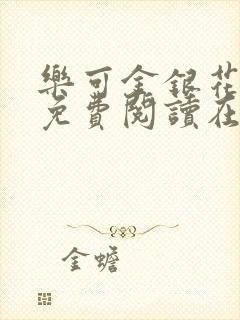 樂可金銀花
免費閱讀在
金蟾